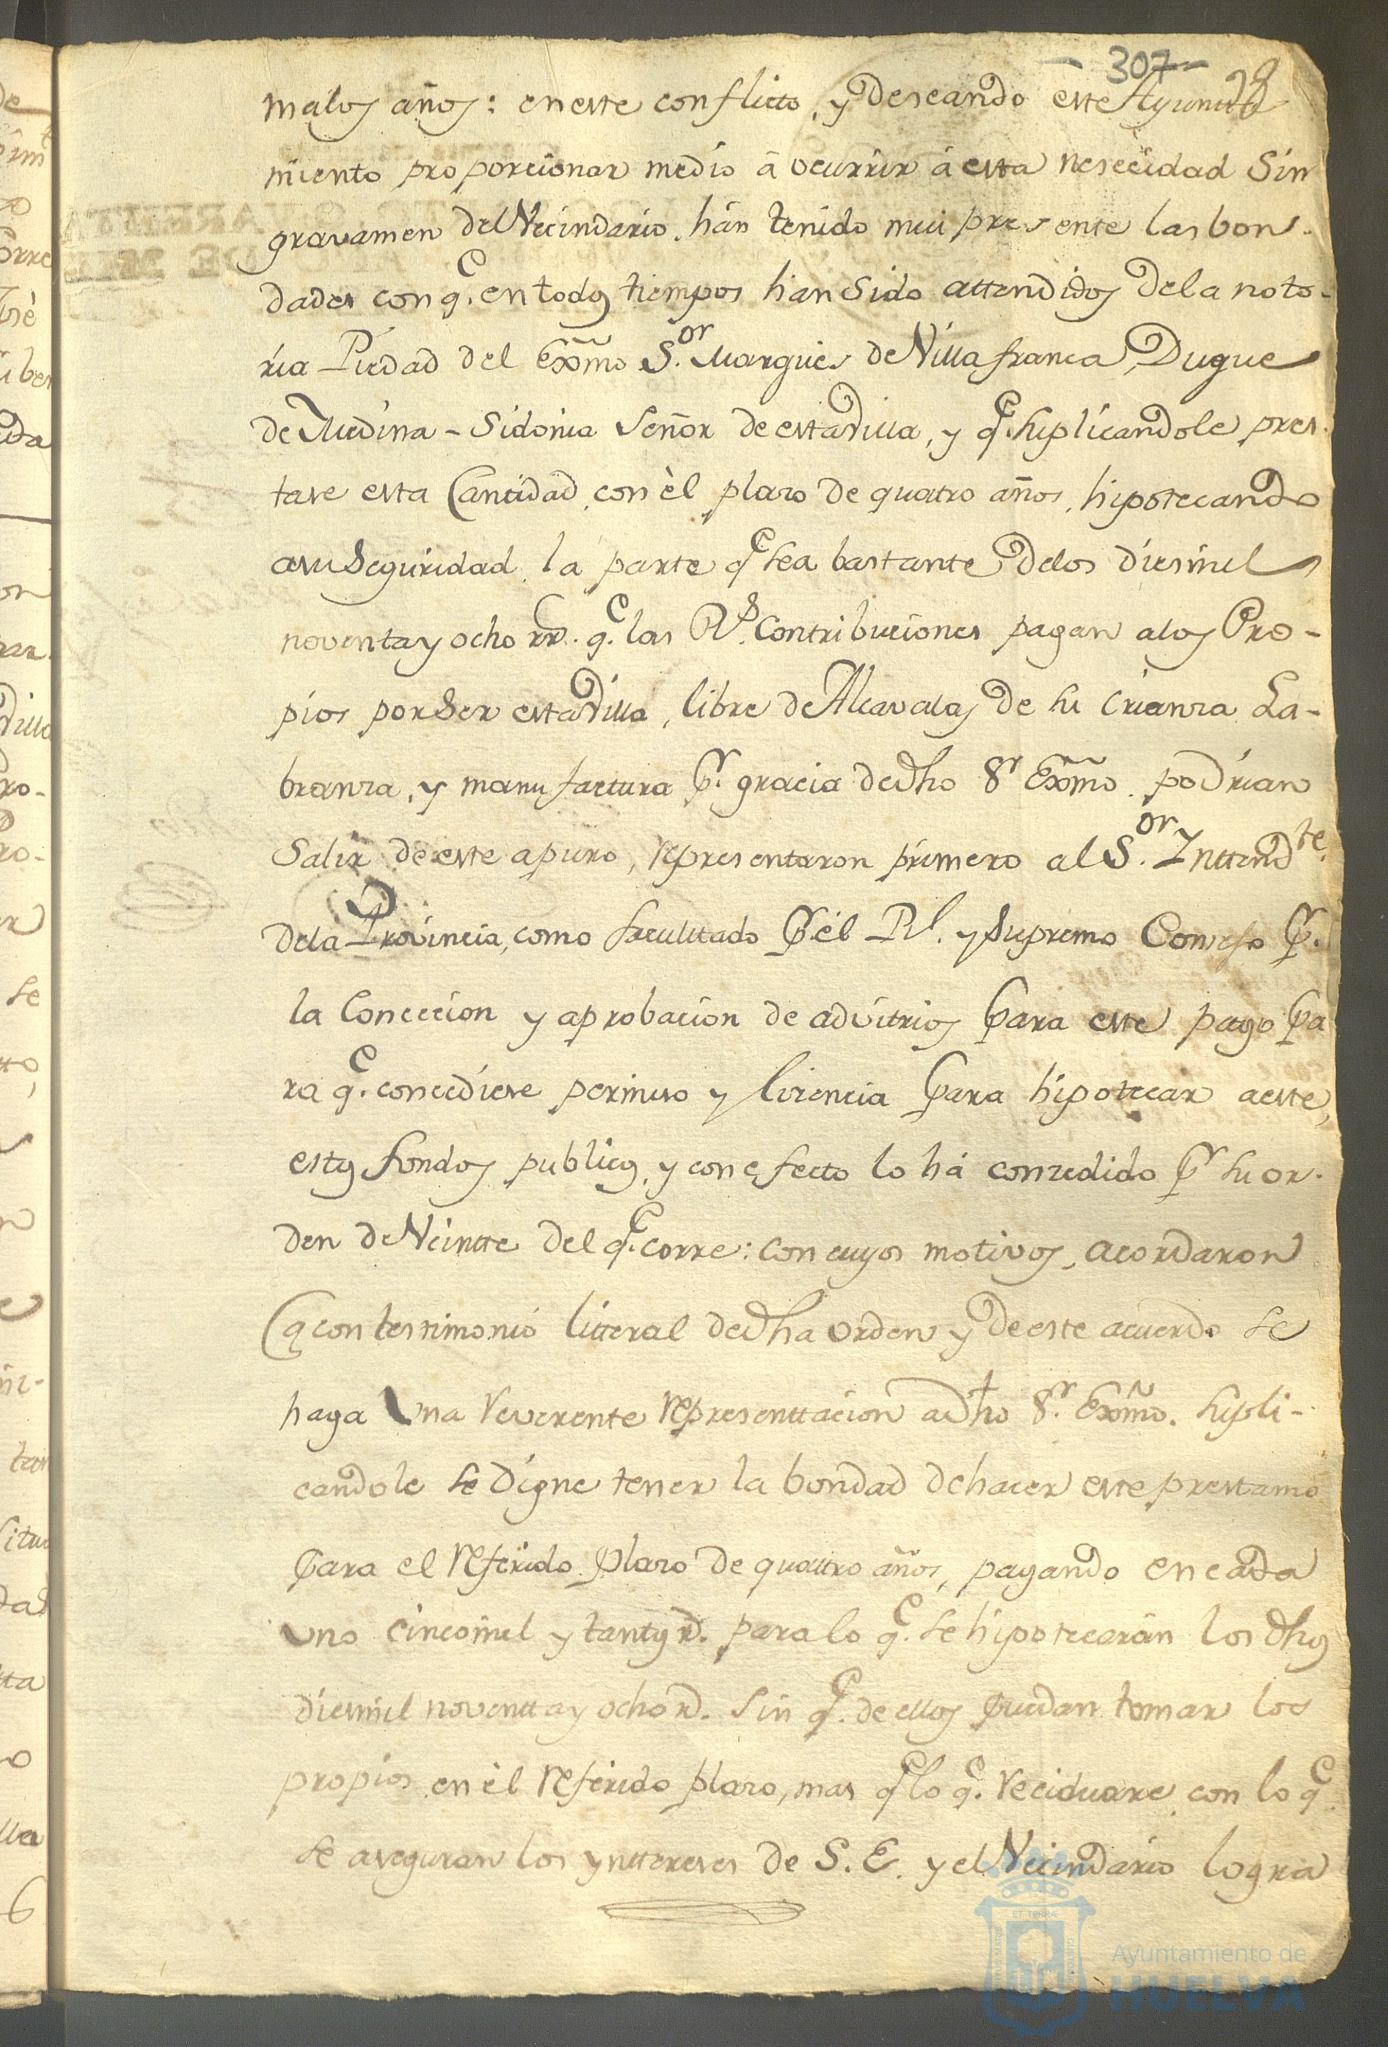 -307-
malos años: en este conflicto, y deseando este Ayunta
miento proporcionar medio â ocurrir á esta nesecidad Sin
gravamen del Vecindario, hán tenido mui presente las bon-
dades con q.e en todos tiempos han Sido attendidos de la noto-
ria Piedad del Exmo S.or Marques de Villafranca, Duque
de Medina-Sidonia Señor de esta Villa, y q.e suplicandole pres-
tase esta Cantidad, con èl plaso de quatro años, hipotecando
a su Seguridad la parte q.e sea bastante de los diesmil
noventa y ocho rr. q.e las R.s Contribuciones pagan a los Pro-
pios por Ser esta Villa, libre de Alcavalas de su Crianza La-
branza, y manufactura p.r gracia de dho S.r Exmo. podrian
Salir de este apuro, representaron primero al S.or Ynttend.te
de la Provincia, como facultado p.r él R.l y Supremo Consejo p.a
la Conccecion y aprobacion de advitrios para este pago pa
ra q.e concediese permiso y licencia para hipotecar a este,
estos fondos publicos, y con efecto lo há consedido p.r su or-
den de Veintte del q.e corre: con cuyos motivos, acordaron
q con testimonio litteral de dha orden y de este acuerdo se
haga Una reverente representtacion a dho S.r Exmo. supli-
candole se digne tener la bondad de hacer este prestamo
para el referido plazo de quattro años, pagando en cada
uno cincomil y tantos r.s para lo q.e se hipotecarán los dhos
diesmil noventta y ocho r.s sin q.e de ellos puedan tomar los
propios en èl referido plazo, mas q.e lo q.e reciduare con lo q.e
se aseguran los ynttereses de S.E. y el Vecindario logra
Ayuntamiento de
HUELVA